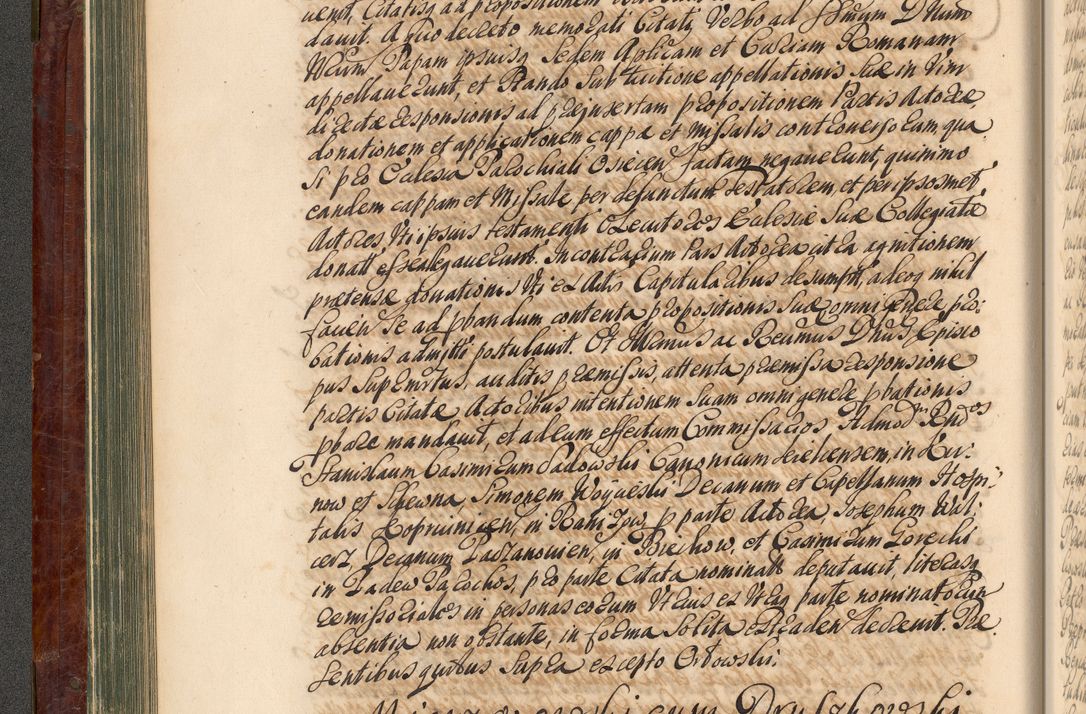 uenit, Citatisq ad propositionem
dauit. A quo decreto memorati Citati, Verbo ad SSmum Dnum
Nrum Papam ipsiusq Sedem Aplicam et Curiam Romanam
appellauerunt, et Stando Sub tuitione appellationis Suæ in Vim
directæ responsionis ad præinsertam propositionem Partis Actoreæ
donationem et applicationem cappæ et Missalis controuerso eam qua
si pro Eclesia Parochiali Osiecen factam negauerunt, quinimo
eandem cappam et Missale, per defunctum Testatorem, et per ipsosmet
Actores Uti ipsius testamenti Executores Eclesiæ Suæ Collegiatæ
donatt esse allegauerunt. In contrarium Pars Actorea citra agnitionem
prætensæ donationis Uti ex Actis Capitularibus desumptt, adeoq nihil
fauen Se ad pbandum contenta propositionis Suæ omni genere pro:
bationis admitti postulauit. Et Illrmus ac Reumus Dnus Episco
pus Suprmtus, auditis præmissis, attenta præmissa responsione
partis Citatæ Actoribus intentionem Suam omni genere pbationis
pbare mandauit, et ad eum effectum Commissarios Admod Rndos
Stanislaum Casimirum Sadowski Canonicum ierelicensem, in Kur:
now et Schewna, Simonem Woyueski Decanum et Capellanum Hospi:
talis Koprziuicen, in Rahizow, p parte Actorea, Josephum Wal:
cerz, Decanum Padzanouien, in Brichow, et Casimirum Gorecki
in Padew Parochos, pro parte Citata nominatt deputauit, literasq
remissoriales in personas eorum Utrius ex Utraq parte nominatorum
absentia non obstante, in forma Solita extraden decreuit. Præ
Sentibus quibus Supra excepto Orłowski.